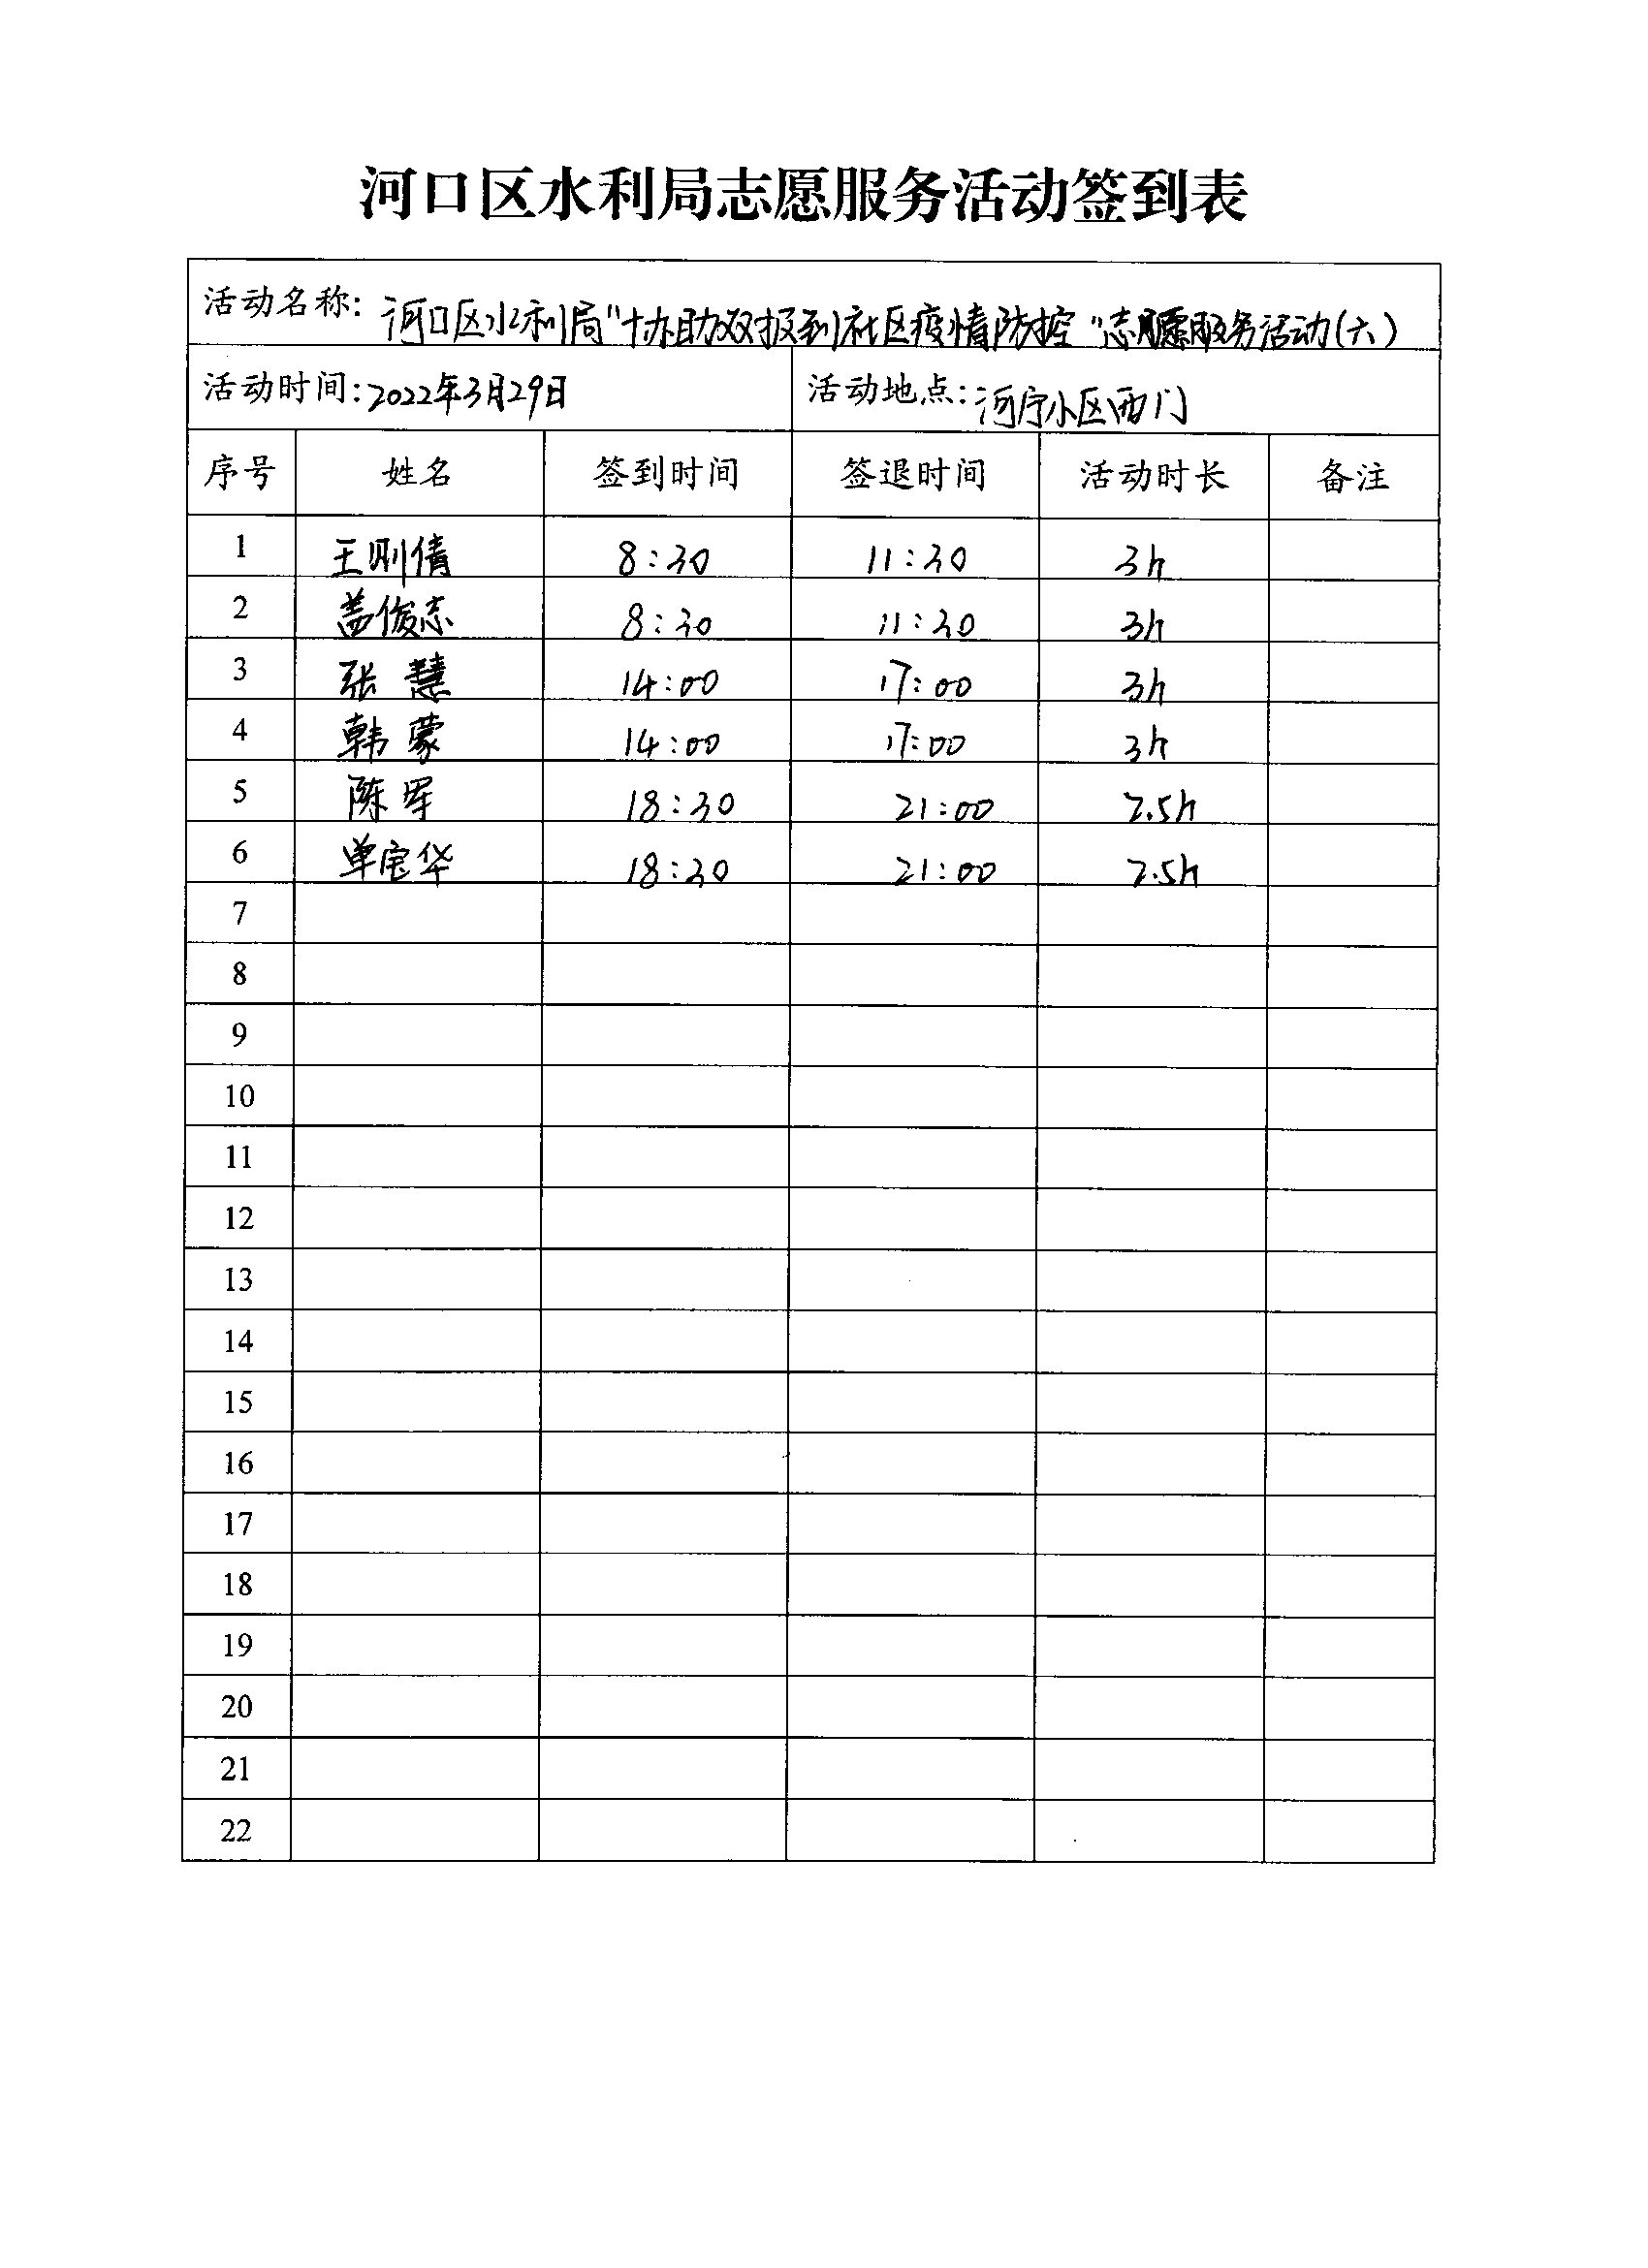 河口区水利局志愿服务活动签到表
活动名称: 河口区水利局"协助双报到社区疫情防控"志愿服务活动(六)
活动时间: 2022年3月29日 活动地点: 河宁小区西门
序号 姓名 签到时间 签退时间 活动时长 备注
1 王刚倩 8:30 11:30 3h
2 盖俊志 8:30 11:30 3h
3 张慧 14:00 17:00 3h
4 韩蒙 14:00 17:00 3h
5 陈军 18:30 21:00 2.5h
6 单宝华 18:30 21:00 2.5h
7
8
9
10
11
12
13
14
15
16
17
18
19
20
21
22